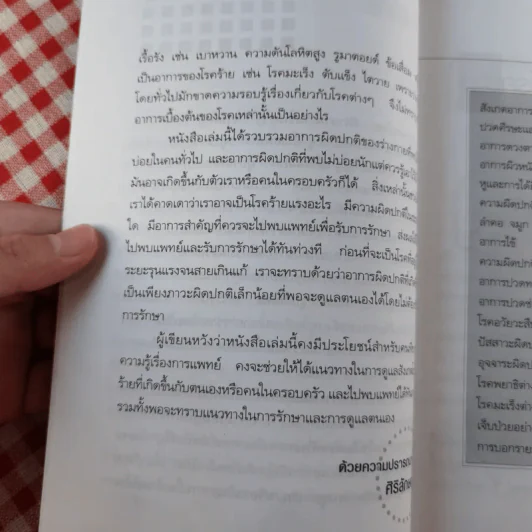 เรื้อรัง เช่น เบาหวาน ความดันโลหิตสูง รูมาตอยด์ ข้อเสื่อม
เป็นอาการของโรคร้าย เช่น โรคมะเร็ง ตับแข็ง ไตวาย
โดยทั่วไปมักขาดความรอบรู้เรื่องเกี่ยวกับโรคต่างๆ จึงไม่
อาการเบื้องต้นของโรคเหล่านั้นเป็นอย่างไร
หนังสือเล่มนี้ได้รวบรวมอาการผิดปกติของร่างกายที่
บ่อยในคนทั่วไป และอาการผิดปกติที่พบไม่บ่อยนักแต่ควรรู้
มันอาจเกิดขึ้นกับตัวเราหรือคนในครอบครัวก็ได้ สิ่งเหล่านี้
เราได้คาดเดาว่าเราอาจเป็นโรคร้ายแรงอะไร มีความผิดปกติ
ใด มีอาการสำคัญที่ควรจะไปพบแพทย์เพื่อรับการรักษา
ไปพบแพทย์และรับการรักษาได้ทันท่วงที ก่อนที่จะเป็นโรค
ระยะรุนแรงจนสายเกินแก้ เราจะทราบด้วยว่าอาการผิดปกติ
เป็นเพียงภาวะผิดปกติเล็กน้อยที่พอจะดูแลตนเองได้โดยไม่
การรักษา
ผู้เขียนหวังว่าหนังสือเล่มนี้คงมีประโยชน์สำหรับ
ความรู้เรื่องการแพทย์ คงจะช่วยให้ได้แนวทางในการดูแล
ร้ายที่เกิดขึ้นกับตนเองหรือคนในครอบครัว และไปพบแพทย์ได้
รวมทั้งพอจะทราบแนวทางในการรักษาและการดูแลตนเอง
ด้วยความปรารถ
ศิริลัก
สังเกตอาการ
ปวดศีรษะ
อาการดวงตา
อาการผิวหนัง
หูและการได้
ความผิดปกติ
ลำคอ จมูก
อาการไข้
ความผิดปก
อาการปวด
อาการปวด
โรคอวัยวะ
ปัสสาวะผิด
อุจจาระผิด
โรคพยาธิ
โรคมะเร็งต่า
เจ็บป่วยอย่า
การบอกราย